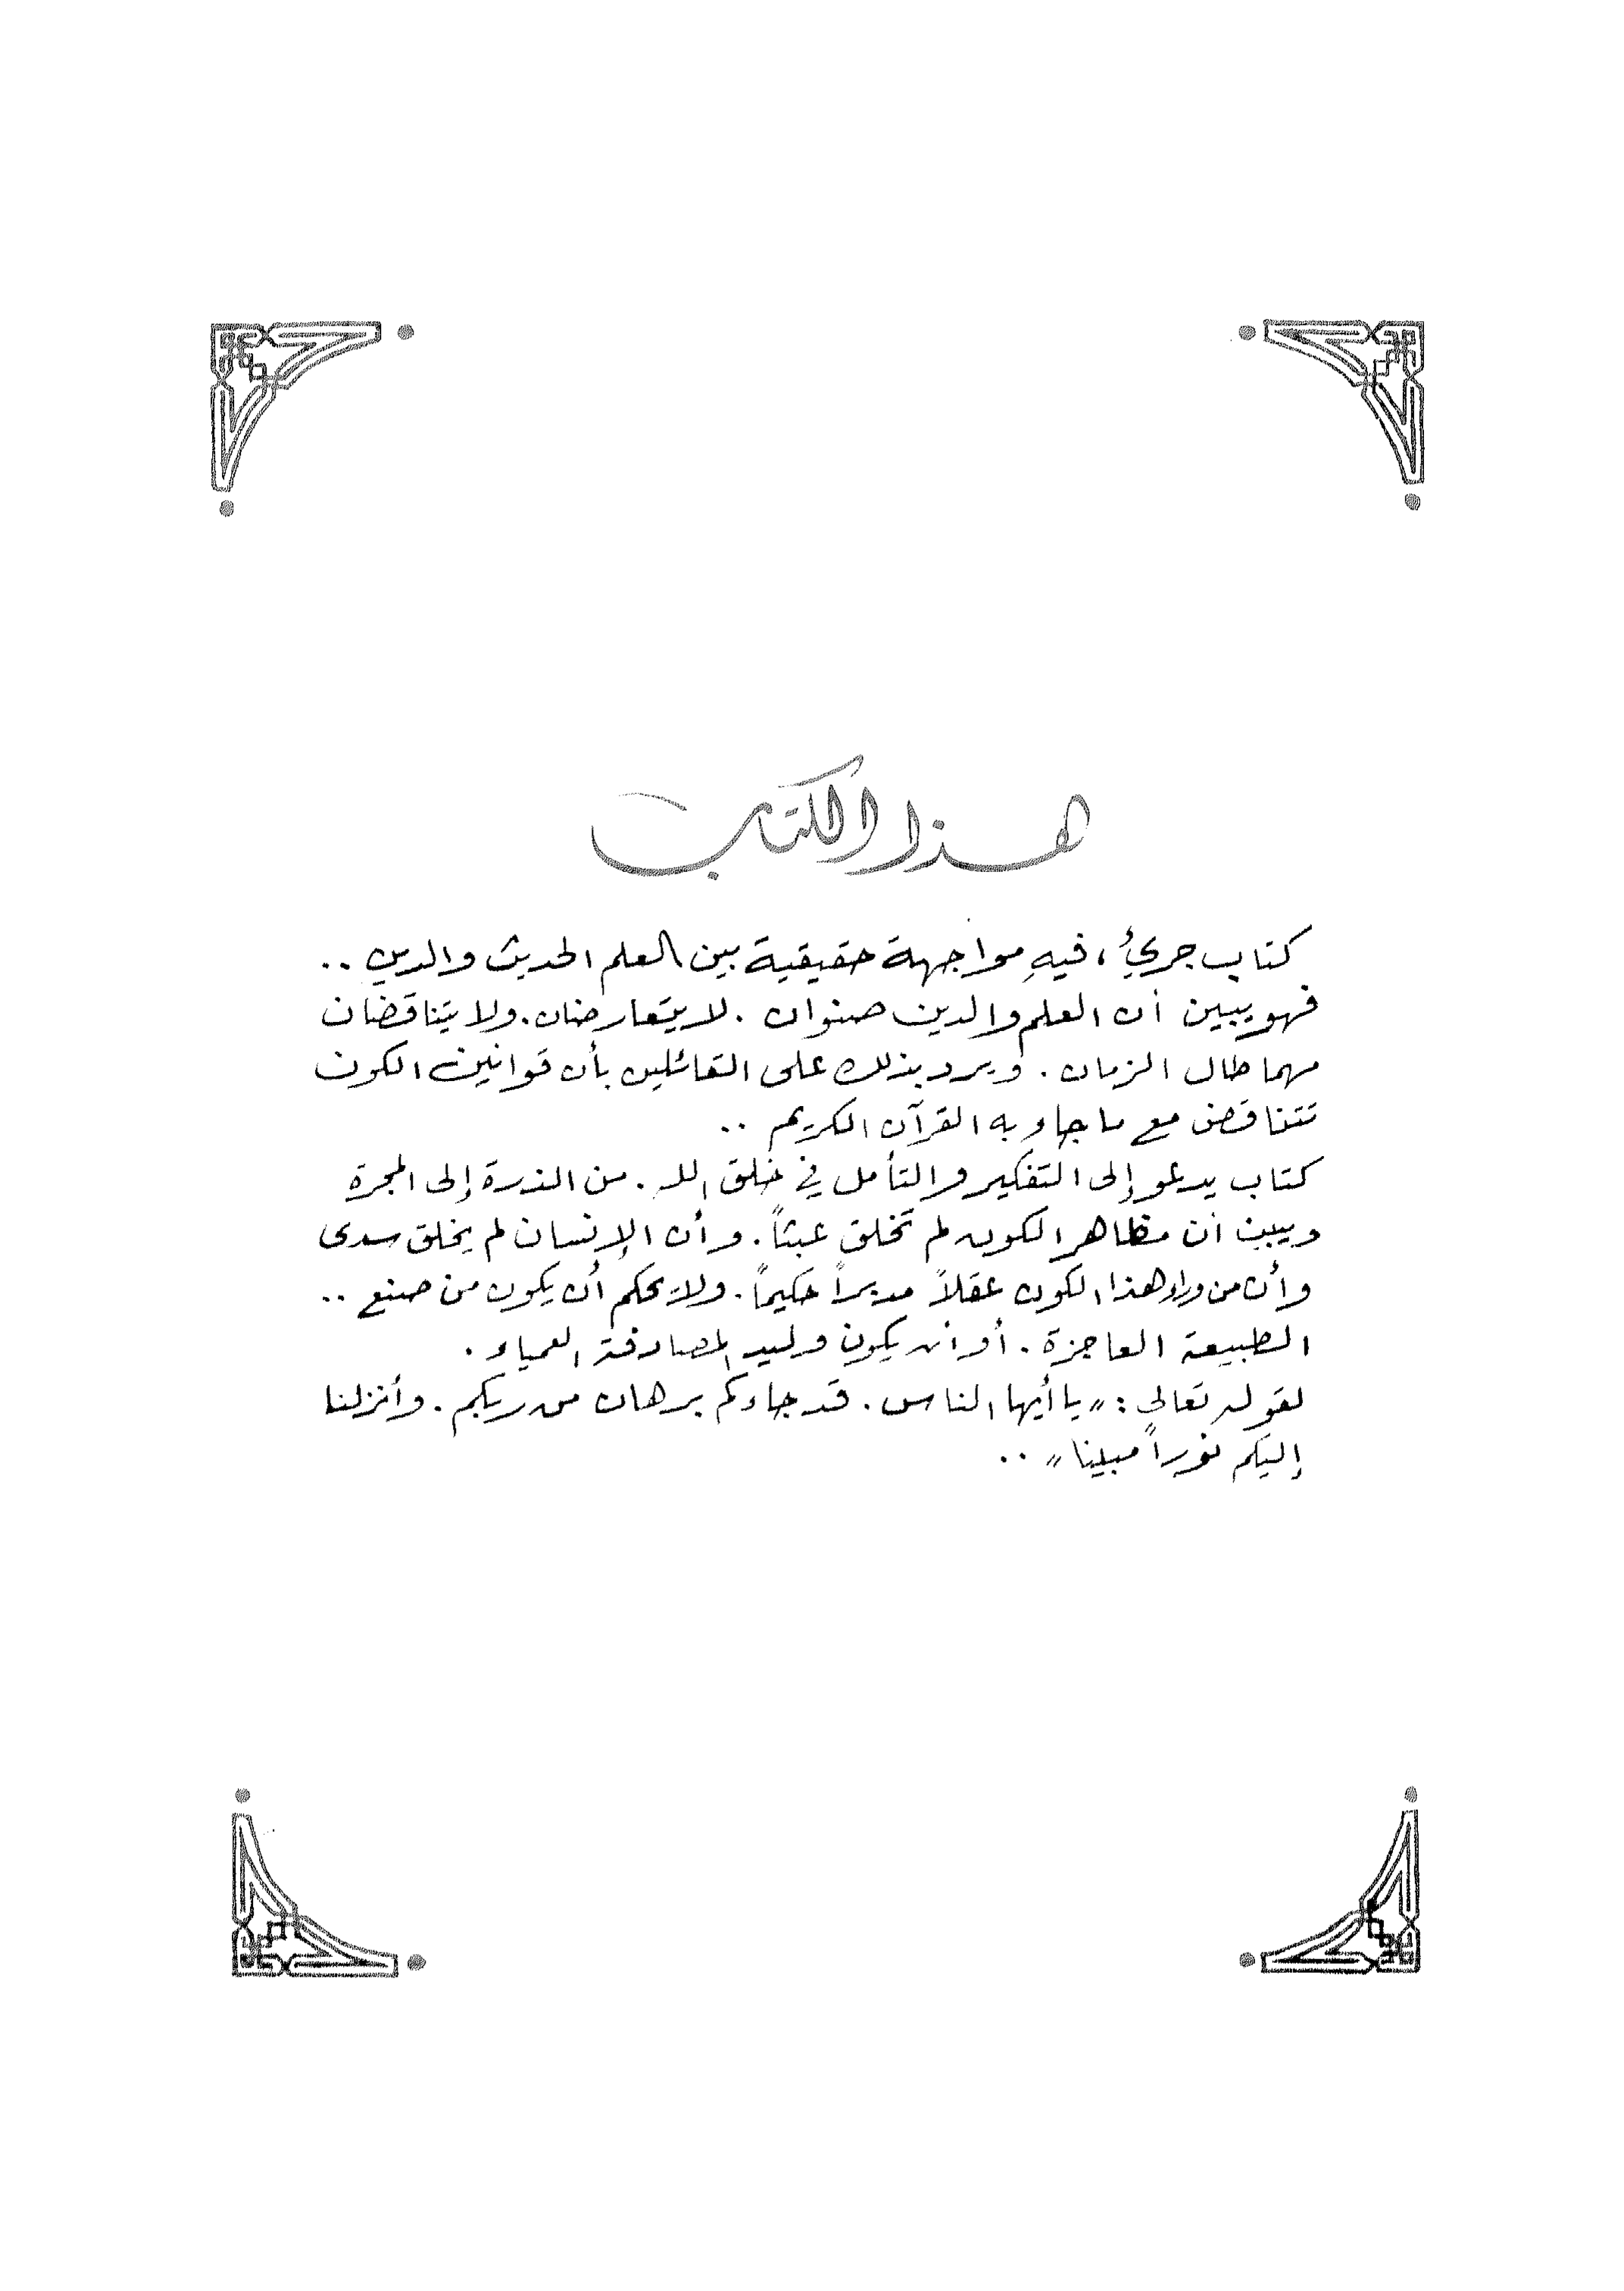 هذا الكتاب
كتاب جرئ، فيهِ مواجهة حقيقية بين العلم الحديث والدين ..
فهو يبين أن العلم والدين صنوان . لا يتعارضان . ولا يتناقضان
مهما طال الزمان . ويرد بذلك على القائلين بأن قوانين الكون
تتناقض مع ما جاء به القرآن الكريم ..
كتاب يدعو إلى التفكير والتأمل في خلق الله . من الذرة إلى المجرة
ويبين أن مظاهر الكون لم تخلق عبثاً . وأن الإنسان لم يخلق سدى
وأن من وراء هذا الكون عقلاً مدبراً حكيماً . ولا يحكم أن يكون من صنع ..
الطبيعة العاجزة . أو أن يكون وليد المصادفة العمياء .
لقوله تعالى : " يا أيها الناس . قد جاءكم برهان من ربكم . وأنزلنا
إليكم نوراً مبينا " ..